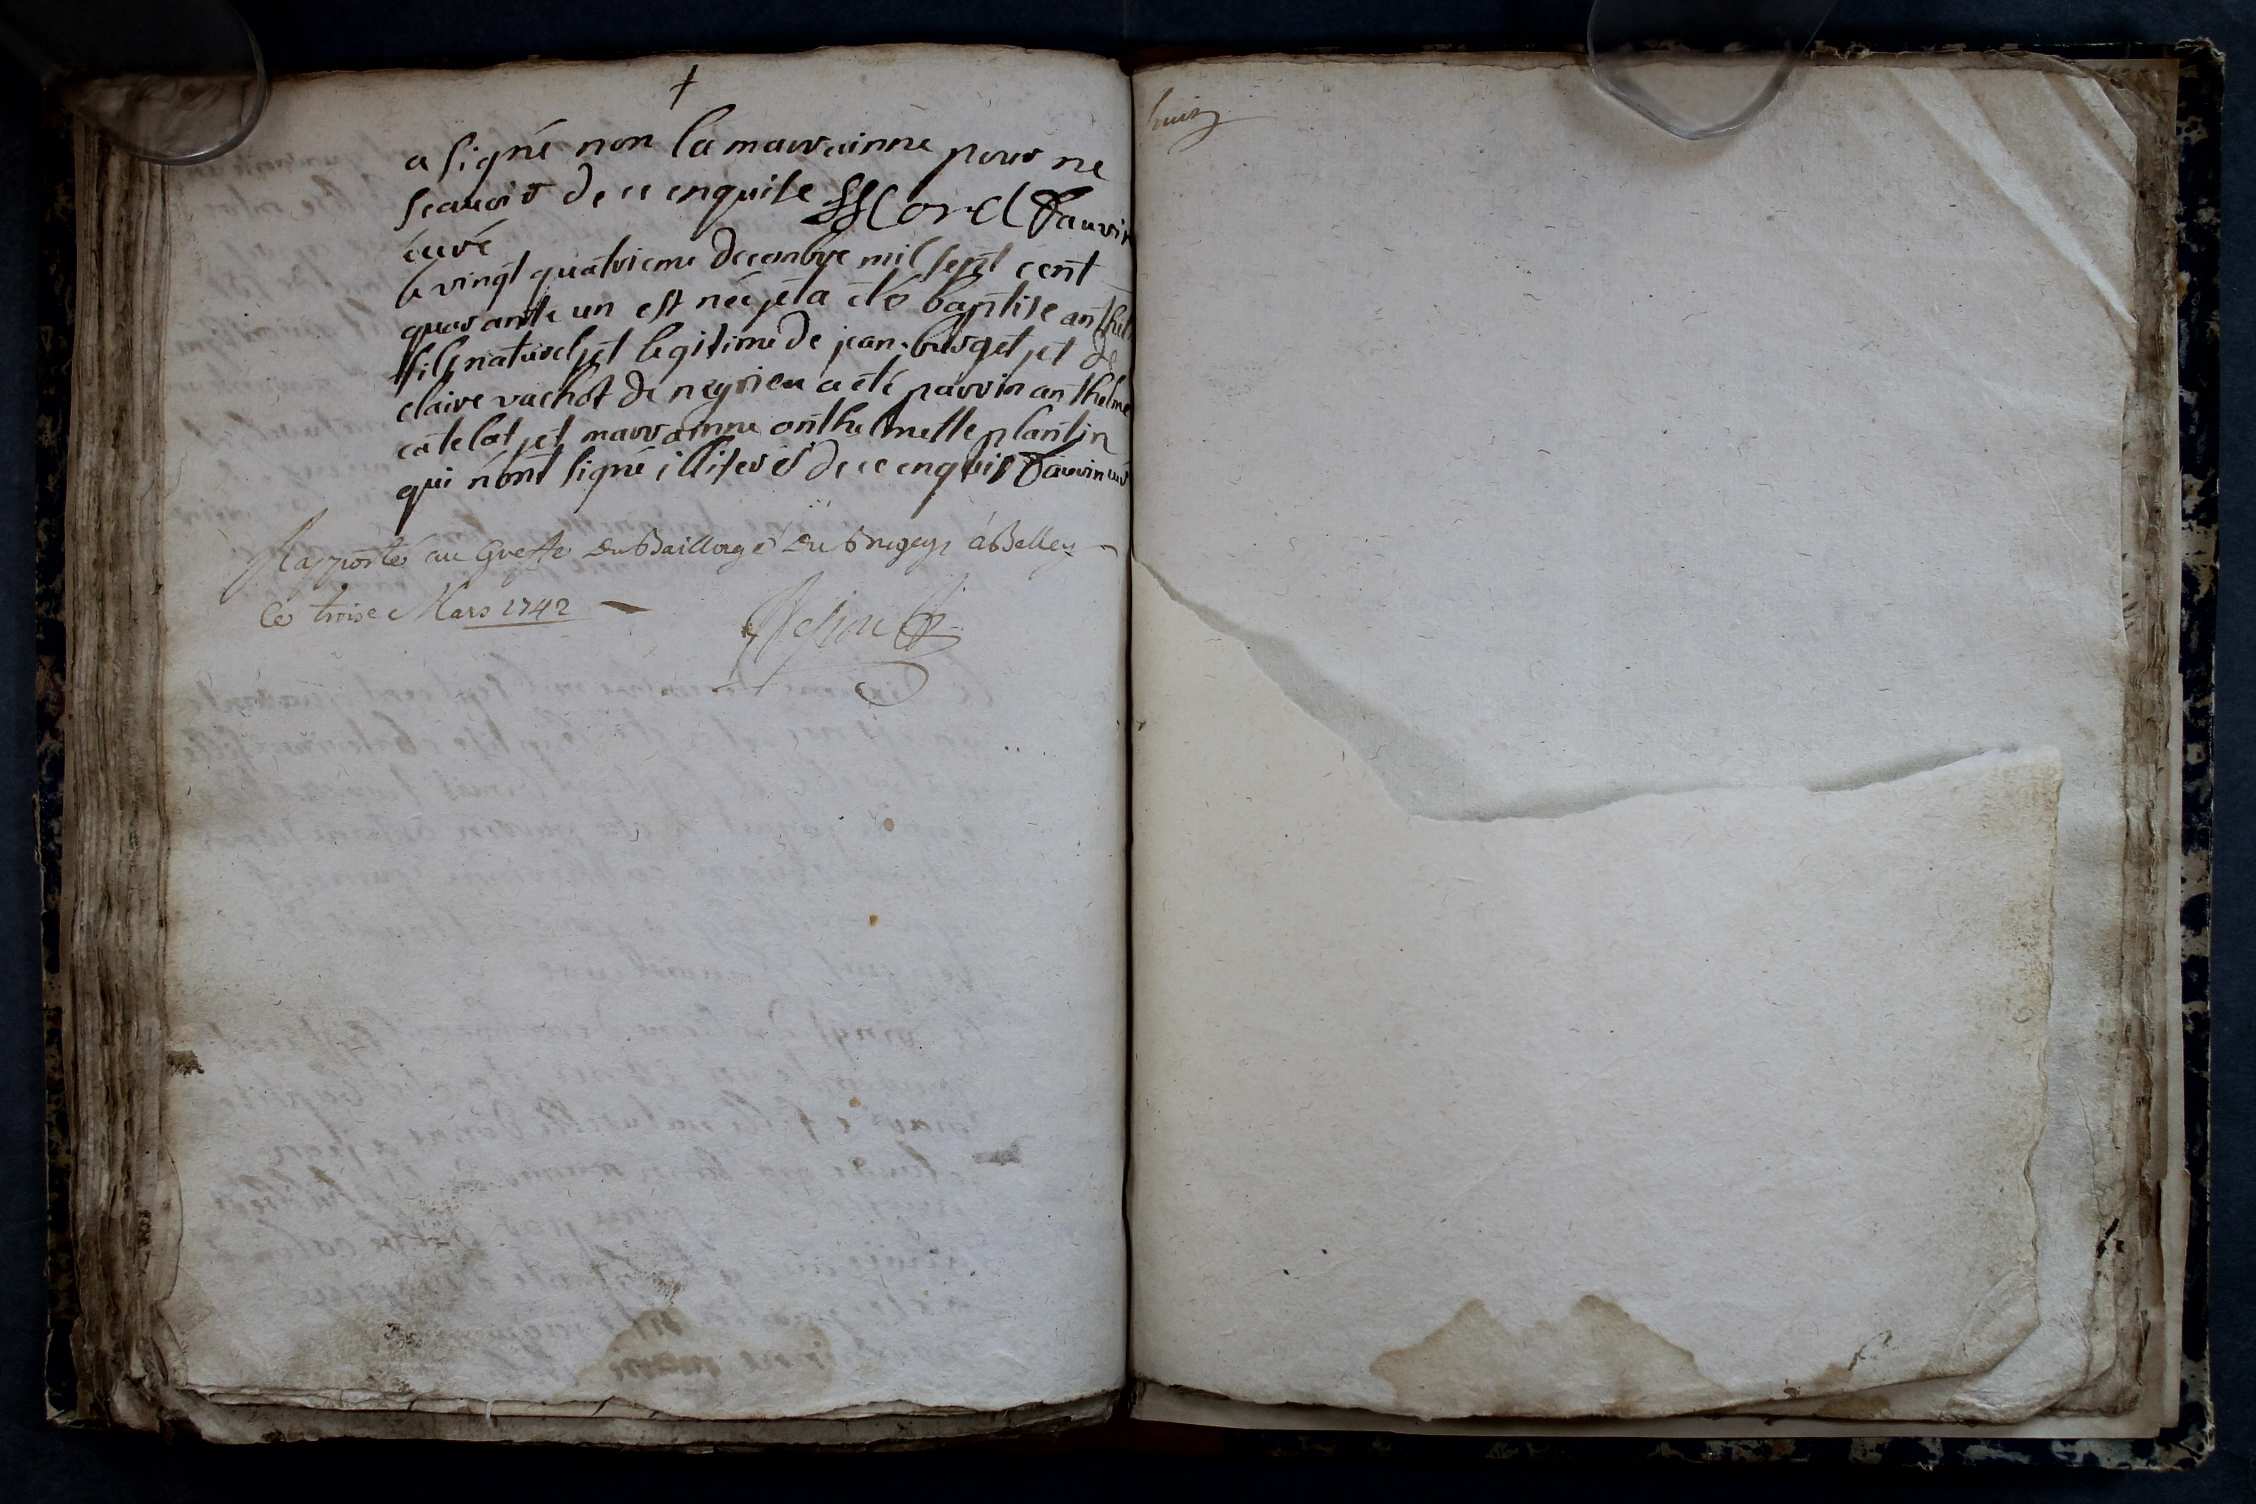 †
a signé non la marrainne pour ne
scauoir de ce enquise Cord fauvin
curé
le vingt quatrieme decembre mil sept cent
quarante un est né et a été baptise anthel
fils naturel et legitime de jean burget et de
claire vachot de neyrieu a été parrin anthelme
catelot et marrainne anthelmette plantin
qui n'ont signé illiterés de ce enquis fauvin curé
Rapporté au Greffe du Baillage du Bugey à Belley
Ce trois Mars 1742
huit